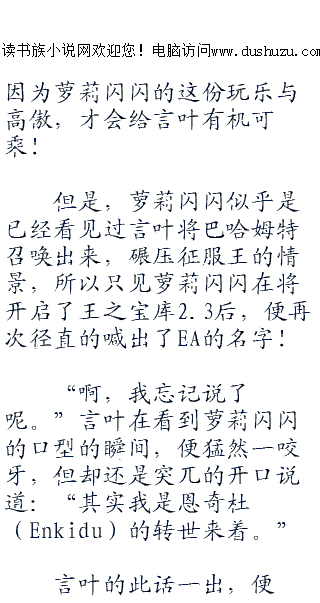 读书族小说网欢迎您！电脑访问www.dushuzu.com
因为萝莉闪闪的这份玩乐与
高傲，才会给言叶有机可
乘！
但是，萝莉闪闪似乎是
已经看见过言叶将巴哈姆特
召唤出来，碾压征服王的情
景，所以只见萝莉闪闪在将
开启了王之宝库2.3后，便再
次径直的喊出了EA的名字！
“啊，我忘记说了
呢。”言叶在看到萝莉闪闪
的口型的瞬间，便猛然一咬
牙，但却还是突兀的开口说
道：“其实我是恩奇杜
（Enkidu）的转世来着。”
言叶的此话一出，便